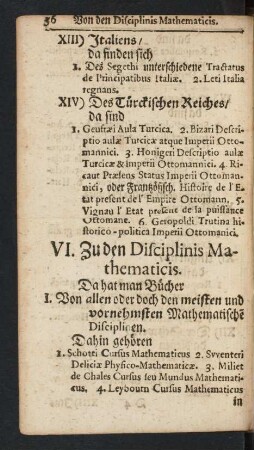 56 Von den Disciplinis Mathematicis.
XIII) Italiens/
da finden sich
1. Des Segethi unterschiedene Tractatus
de Principatibus Italiæ. 2. Leti Italia
regnans.
XIV) Des Türckischen Reiches/
da sind
1. Geufræi Aula Turcica. 2. Bizari Descri-
ptio aulæ Turcicæ atque Imperii Otto-
mannici. 3. Honigeri Descriptio aulæ
Turcicæ & imperii Ottomannici. 4. Ri-
caut Præsens Status Imperii Ottoman-
nici, oder Frantzösisch. Histoire de l'E-
tat present de l'Empire Ottomann. 5.
Vignau l'Etat present de la puissance
Ottomane. 6. Geropoldi Trutina hi-
storico-politica Imperii Ottomanici.
VI. Zu den Disciplinis Ma-
thematicis.
Da hat man Bücher
I. Von allen oder doch den meisten und
vornehmsten Mathematischẽ
Disciplinen.
Dahin gehören
1. Schotti Cursus Mathematicus 2. Svventeri
Deliciæ Physico-Mathematicæ. 3. Miliet
de Chales Cursus seu Mundus Mathemati-
cus. 4. Leybourn Cursus Mathematicus
in